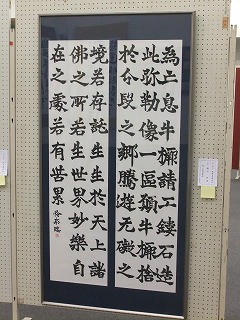 為亡息牛橛請工鏤石造
此弥勒像一區願牛橛捨
於分段之郷騰遊无礙之
境若存託生生於天上諸
佛之所若生世界妙樂自
在之處若有苦累
臨